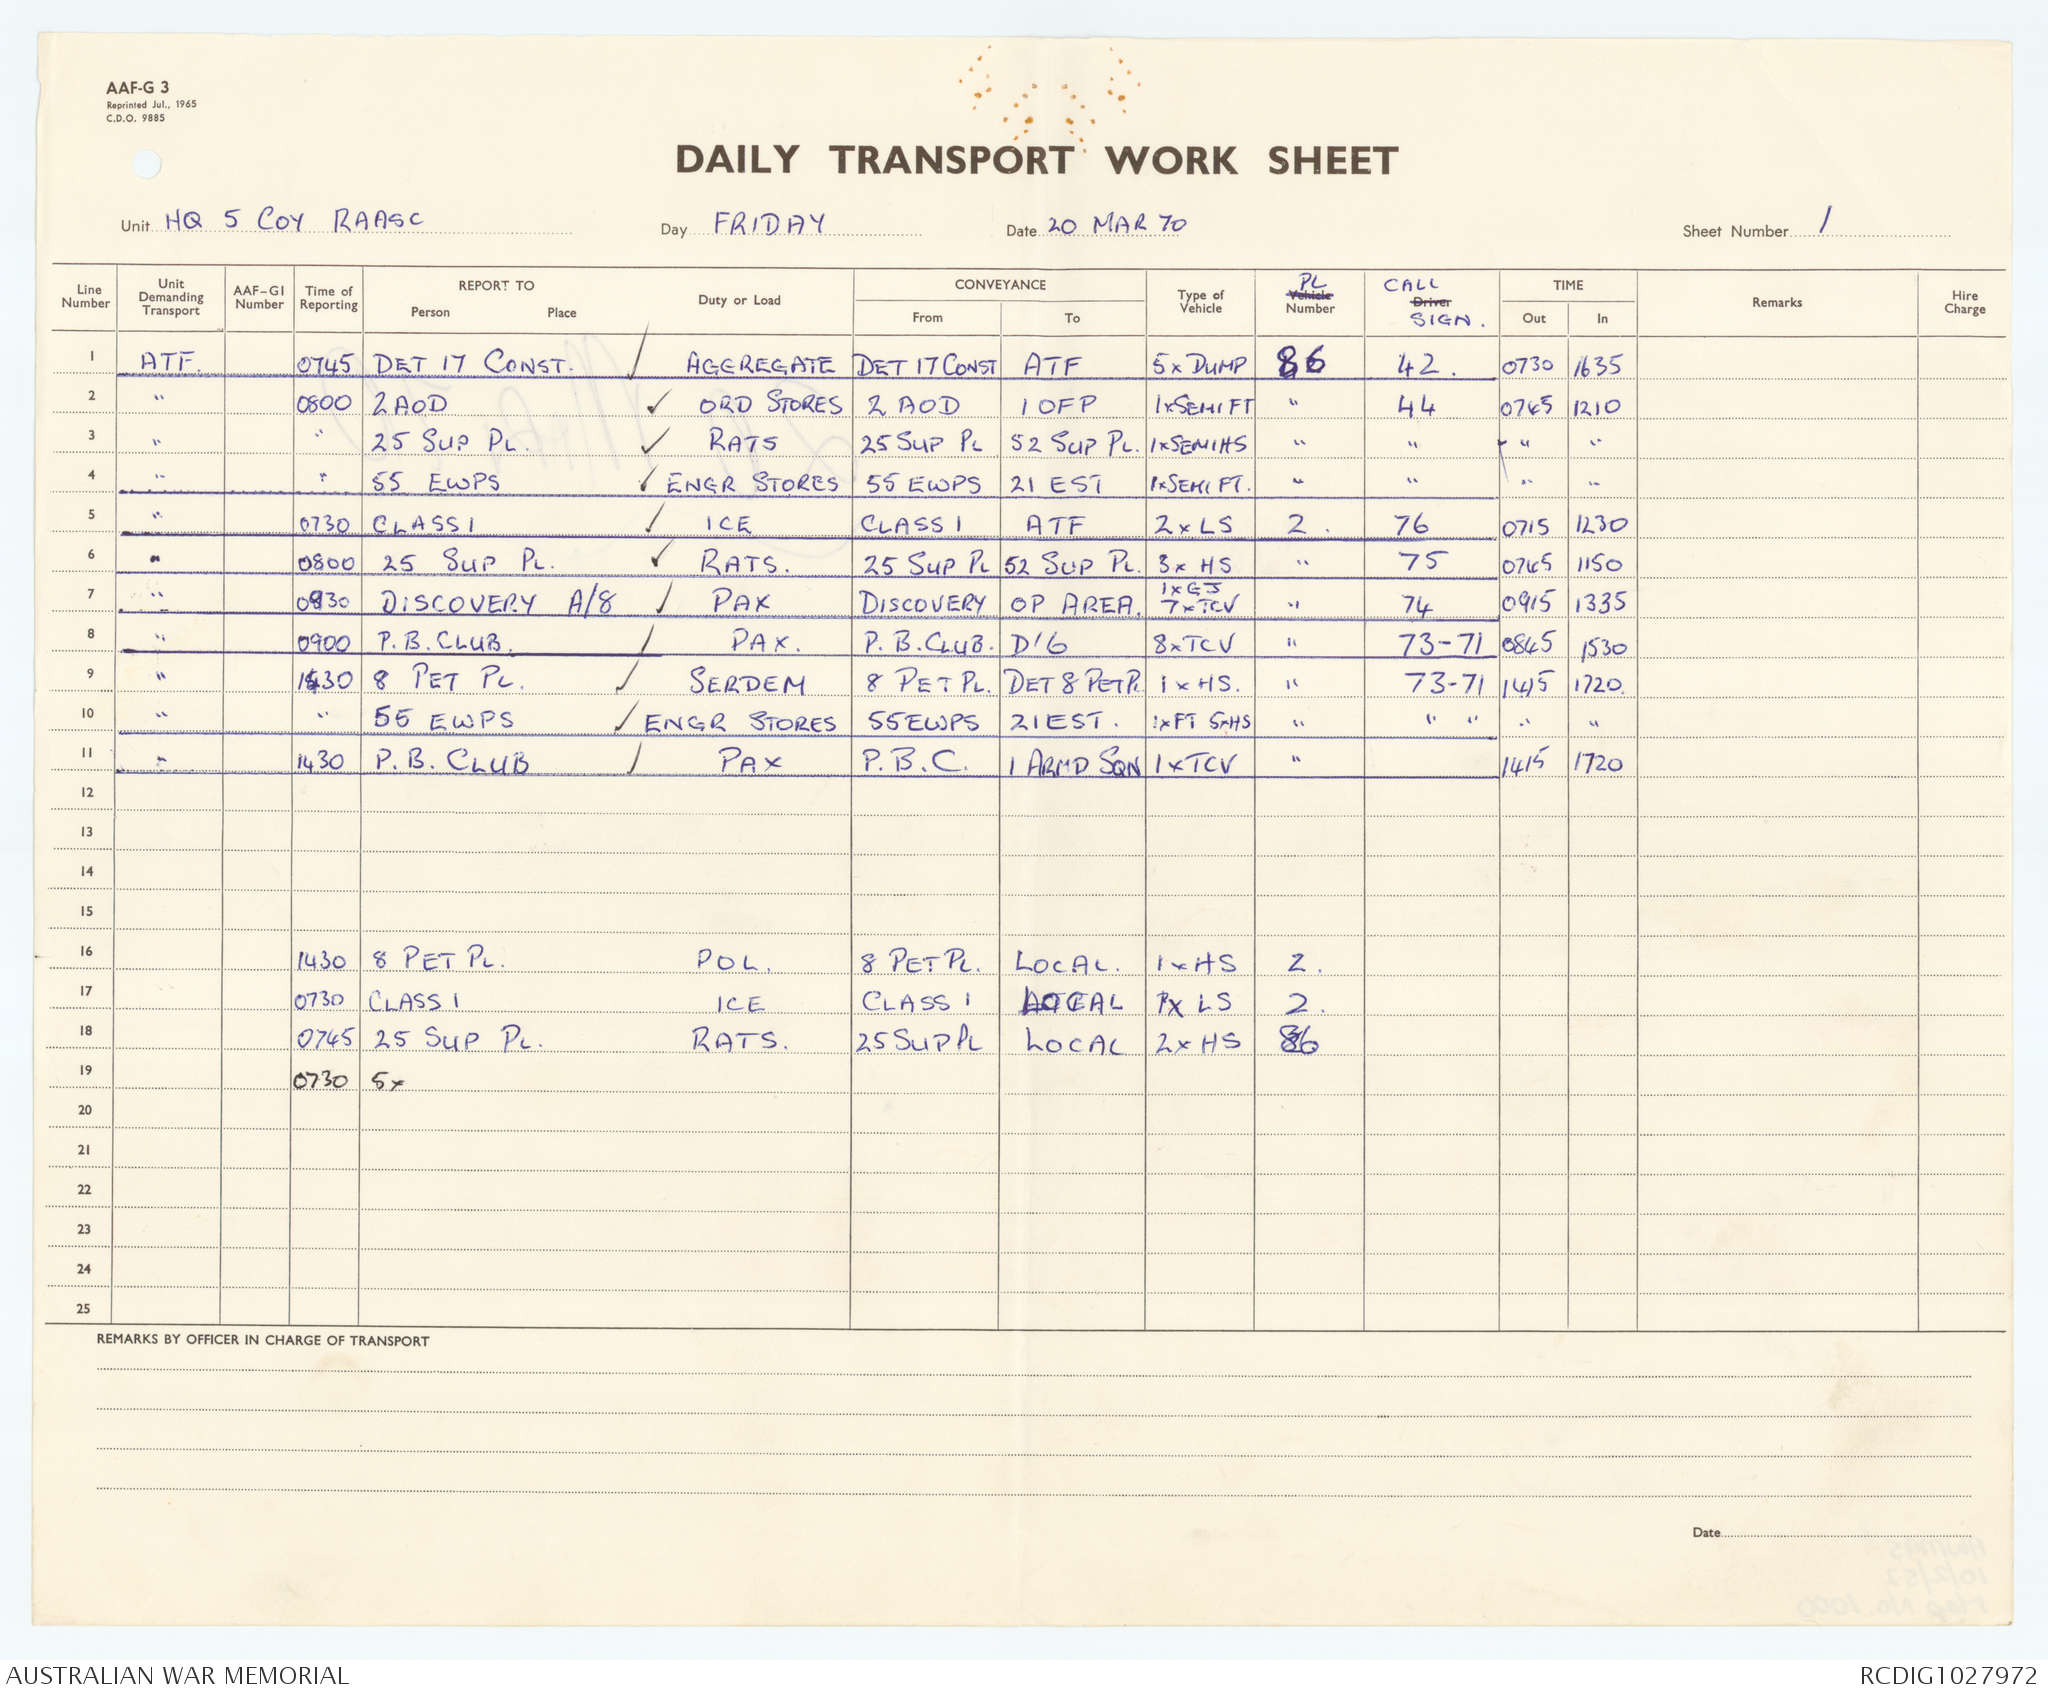 AAF-G 3
Reprinted Jul., 1965
C.D.O. 9885
DAILY TRANSPORT WORK SHEET
Unit HQ 5 COY RAASC Day FRIDAY Date 20 MAR 70 Sheet Number 1
Line Number Unit Demanding Transport AAF-G1 Number Time of Reporting REPORT TO Person Place Duty or Load CONVEYANCE From To Type of Vehicle PL Vehicle Number CALL Driver SIGN. TIME Out In Remarks Hire Charge
1 ATF. 0745 DET 17 CONST. ✓ AGGREGATE DET 17 CONST ATF 5 x DUMP 86 42. 0730 1635
2 " 0800 2 AOD ✓ ORD STORES 2 AOD 1 OFP 1xSEMI FT " 44 0745 1210
3 " " 25 SUP PL. ✓ RATS 25 SUP PL 52 SUP PL. 1xSEMI HS " " " "
4 " " 55 EWPS ✓ ENGR STORES 55 EWPS 21 EST 1xSEMI FT. " " " "
5 " 0730 CLASS 1 ✓ ICE CLASS 1 ATF 2 x LS 2. 76 0715 1230
6 " 0800 25 SUP PL. ✓ RATS. 25 SUP PL 52 SUP PL. 3 x HS " 75 0745 1150
7 " 0930 DISCOVERY A/8 ✓ PAX DISCOVERY OP AREA. 1xGS 7xTCV " 74 0915 1335
8 " 0900 P.B. CLUB. ✓ PAX. P.B. CLUB. D'6 8xTCV " 73-71 0845 1530
9 " 1430 8 PET PL. ✓ SERDEM 8 PET PL. DET 8 PET PL 1 x HS. " 73-71 1415 1720.
10 " " 55 EWPS ✓ ENGR STORES 55 EWPS 21 EST. 1xFT 5xHS " " " " "
11 " 1430 P.B. CLUB ✓ PAX P.B.C. 1 ARMD SQN 1 x TCV " 1415 1720
12
13
14
15
16 1430 8 PET PL. POL. 8 PET PL. LOCAL. 1 x HS 2.
17 0730 CLASS 1 ICE CLASS 1 LOCAL 1x LS 2.
18 0745 25 SUP PL. RATS. 25 SUP PL LOCAL 2 x HS 86
19 0730 5x
20
21
22
23
24
25
REMARKS BY OFFICER IN CHARGE OF TRANSPORT
Date
AUSTRALIAN WAR MEMORIAL RCDIG1027972